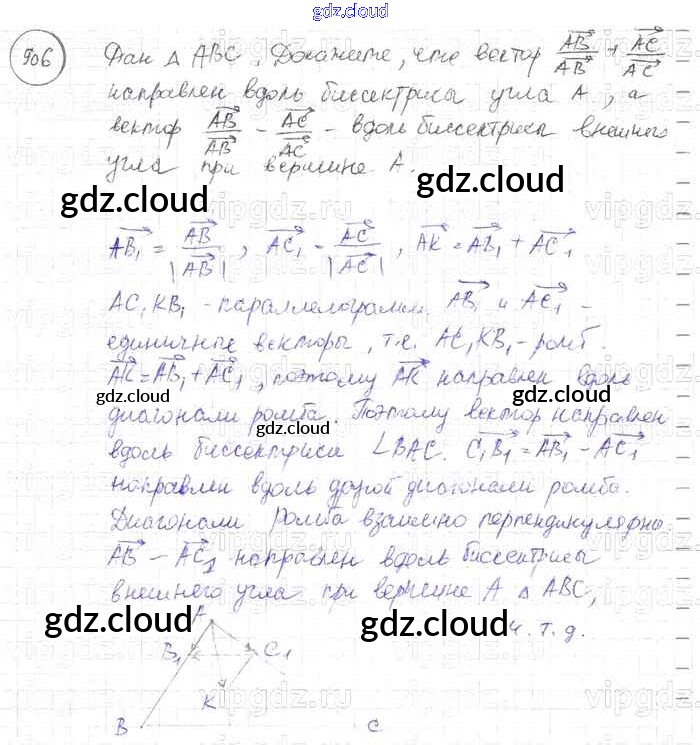 gdz.cloud
906 Дан △ ABC. Докажите, что вектор AB/AB + AC/AC
направлен вдоль биссектрисы угла А, а
вектор AB/AB - AC/AC - вдоль биссектрисы внешнего
угла при вершине А.
gdz.cloud gdz.cloud
AB₁ = AB/|AB|, AC₁ - AC/|AC|, AK = AB₁ + AC₁
AC₁KB₁ - параллелограмм. AB₁ и AC₁ -
единичные векторы, т.е. AC₁KB₁ - ромб.
AK = AB₁ + AC₁, поэтому AK направлен вдоль
gdz.cloud gdz.cloud
диагонали ромба. Поэтому вектор направлен
gdz.cloud
вдоль биссектрисы ∠BAC. C₁B₁ = AB₁ - AC₁
направлен вдоль другой диагонали ромба.
Диагонали ромба взаимно перпендикулярны.
AB - AC₁ направлен вдоль биссектрисы
внешнего угла при вершине А △ ABC,
gdz.cloud gdz.cloud
ч.т.д.
A
B₁ C₁
K
B C
gdz.cloud gdz.cloud